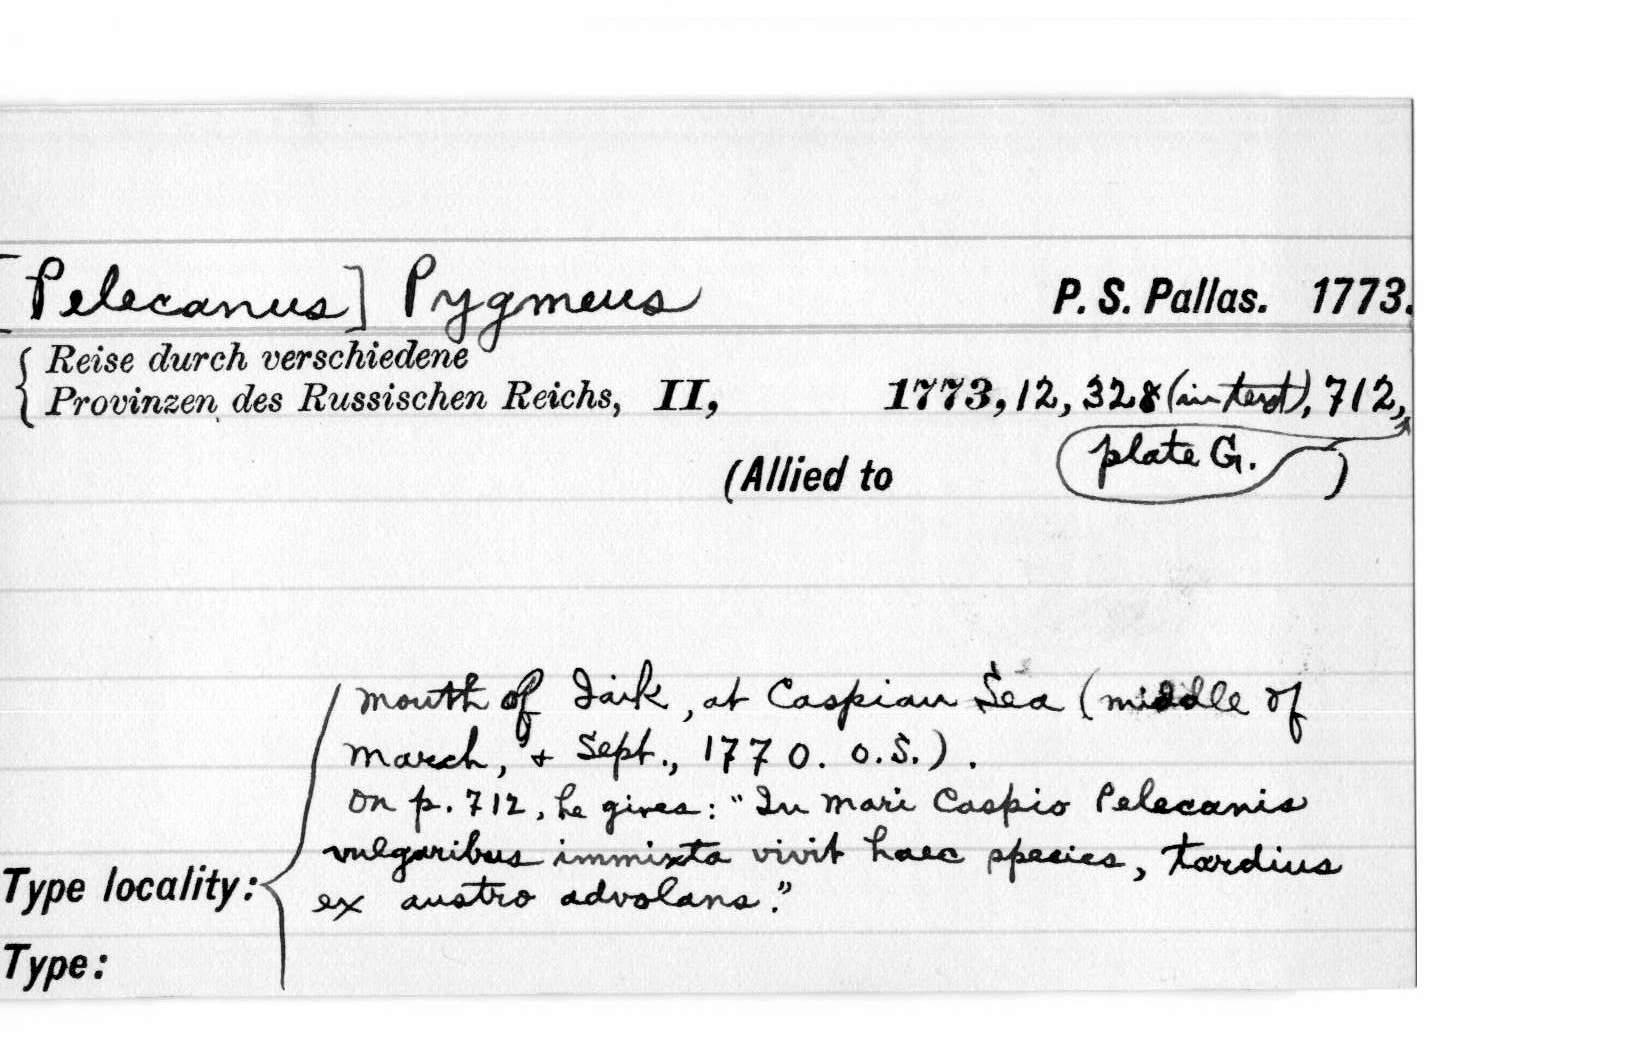 [Pelecanus] Pygmeus P. S. Pallas. 1773.
Reise durch verschiedene
Provinzen des Russischen Reichs, II, 1773, 12, 328 (in text), 712,
plate G.
(Allied to )
mouth of Jaik, at Caspian Sea (middle of
March, + Sept., 1770. O.S.).
On p. 712, he gives: "In mari Caspio Pelecanis
vulgaribus immixta vivit haec species, tardius
Type locality: ex austro advolans."
Type: